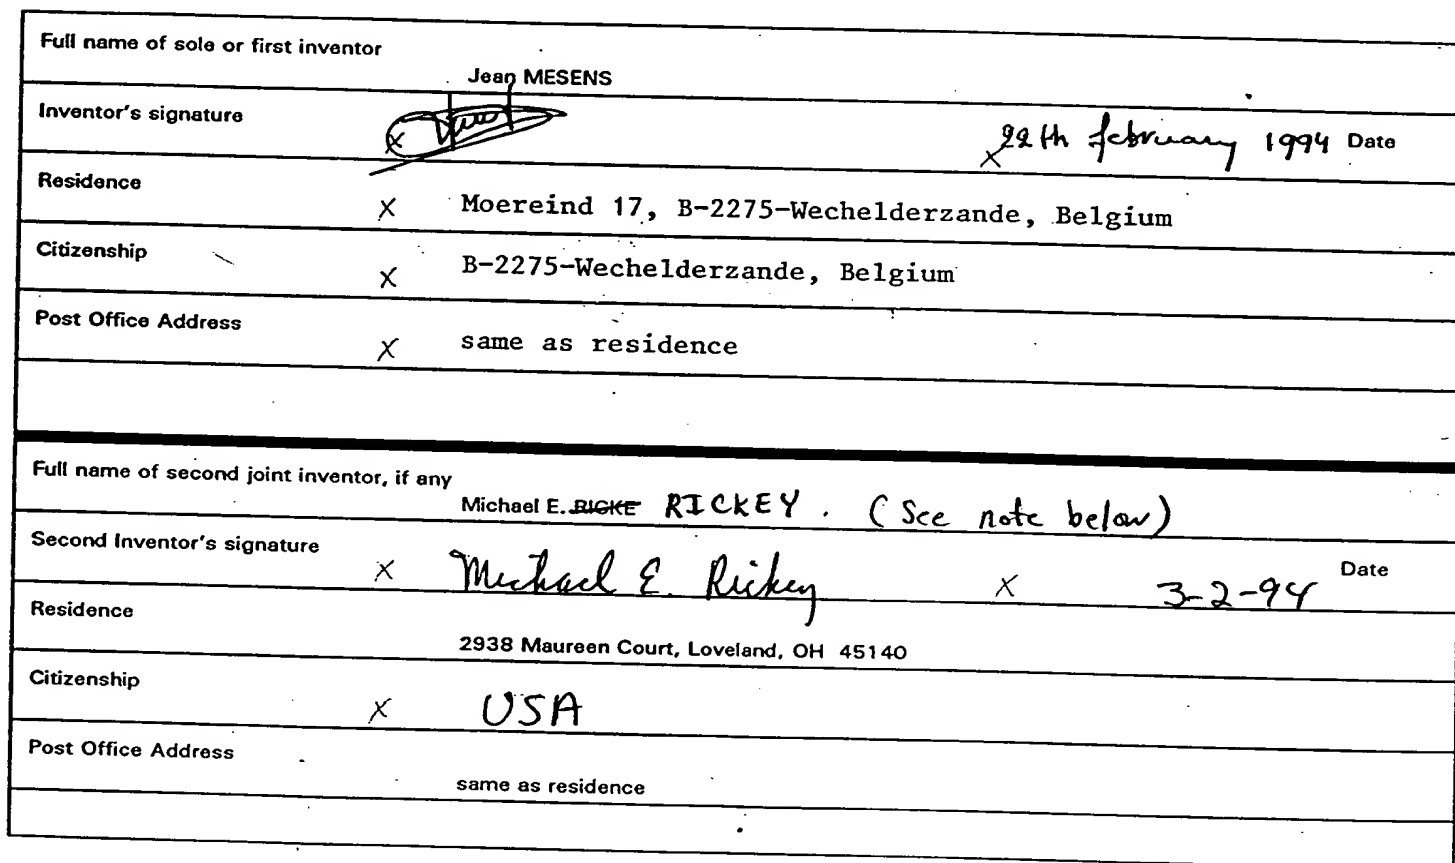 Full name of sole or first inventor
Jean MESENS
Inventor's signature
X
X 22th february 1994 Date
Residence
X Moereind 17, B-2275-Wechelderzande, Belgium
Citizenship
X B-2275-Wechelderzande, Belgium
Post Office Address
X same as residence
Full name of second joint inventor, if any
Michael E. RICKE RICKEY. (See note below)
Second Inventor's signature
X Michael E. Rickey X 3-2-94 Date
Residence
2938 Maureen Court, Loveland, OH 45140
Citizenship
X USA
Post Office Address
same as residence